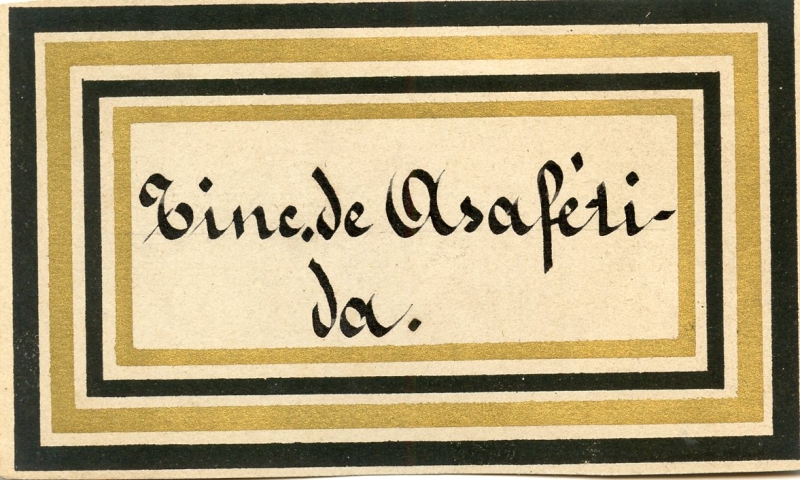 Tinc. de Asaféti-
da.